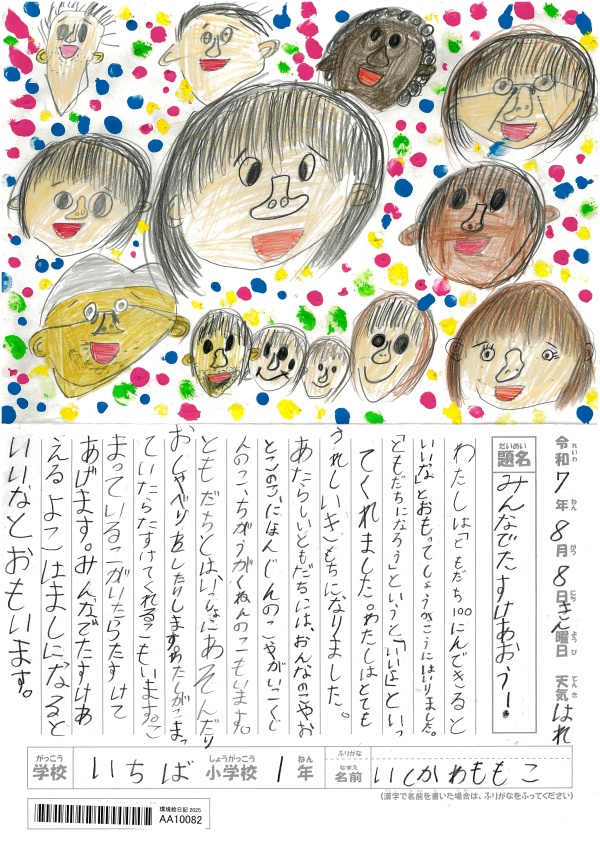 令和7年8月8日きん曜日 天気はれ
れいわ ねん がつ にち ようび てんき
だいめい
題名 みんなでたすけあおう!
わたしは「ともだち100にんできると
いいな」とおもってしょうがっこうにはいりました。
「ともだちになろう」というと、「いいよ」といっ
てくれました。わたしはとても
うれしいきもちになりました。
あたらしいともだちには、おんなのこやお
とこのこ、にほんじんのこやがいこくじ
んのこ、ちがうがくねんのこもいます。
ともだちとは、いっしょにあそんだり
おしゃべりをしたりします。わたしがこまっ
ていたらたすけてくれるこもいます。こ
まっているこがいたらたすけて
あげます。みんなでたすけあ
えるよこはましになると
いいなとおもいます。
がっこう しょうがっこう ねん ふりがな
学校 いちば 小学校 1年 なまえ 名前 いしかわももこ
(漢字で名前を書いた場合は、ふりがなをふってください)
環境絵日記 2025
AA10082